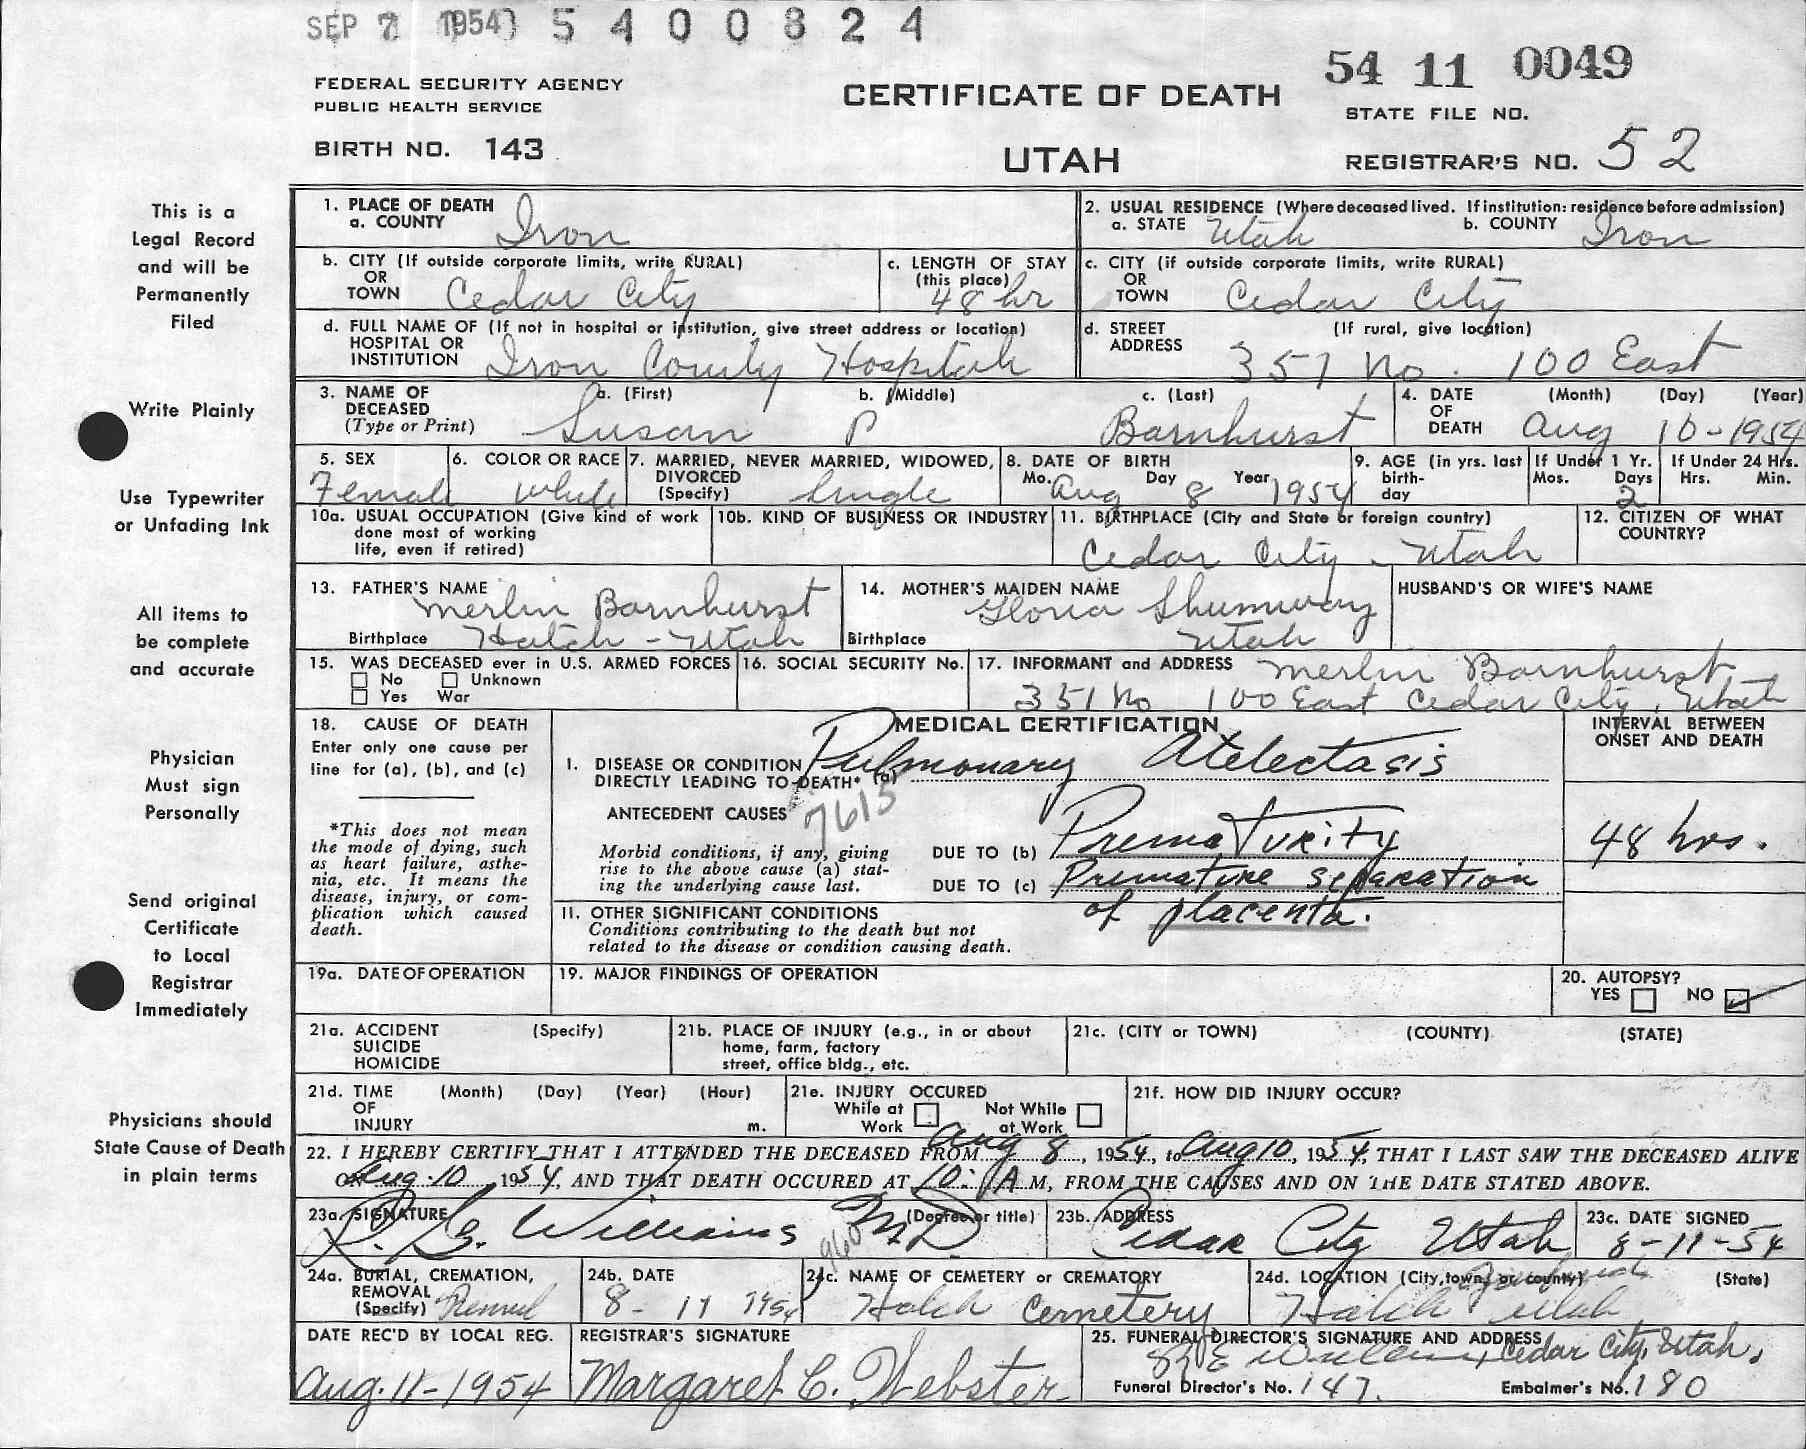 SEP 7 1954 5400824
54 11 0049
FEDERAL SECURITY AGENCY
PUBLIC HEALTH SERVICE
CERTIFICATE OF DEATH
STATE FILE NO.
BIRTH NO. 143
UTAH
REGISTRAR'S NO. 52
This is a
Legal Record
and will be
Permanently
Filed
Write Plainly
Use Typewriter
or Unfading Ink
All items to
be complete
and accurate
Physician
Must sign
Personally
Send original
Certificate
to Local
Registrar
Immediately
Physicians should
State Cause of Death
in plain terms
1. PLACE OF DEATH
a. COUNTY Iron
2. USUAL RESIDENCE (Where deceased lived. If institution: residence before admission)
a. STATE Utah b. COUNTY Iron
b. CITY (If outside corporate limits, write RURAL)
OR
TOWN Cedar City
c. LENGTH OF STAY
(this place)
48 hr
c. CITY (if outside corporate limits, write RURAL)
OR
TOWN Cedar City
d. FULL NAME OF (If not in hospital or institution, give street address or location)
HOSPITAL OR
INSTITUTION Iron County Hospital
d. STREET (If rural, give location)
ADDRESS 351 No. 100 East
3. NAME OF a. (First) b. (Middle) c. (Last)
DECEASED
(Type or Print) Susan P Barnhurst
4. DATE (Month) (Day) (Year)
OF
DEATH Aug 10-1954
5. SEX
Female
6. COLOR OR RACE
White
7. MARRIED, NEVER MARRIED, WIDOWED,
DIVORCED
(Specify) Single
8. DATE OF BIRTH
Mo. Aug Day 8 Year 1954
9. AGE (in yrs. last
birth-
day
If Under 1 Yr.
Mos. Days
2
If Under 24 Hrs.
Hrs. Min.
10a. USUAL OCCUPATION (Give kind of work
done most of working
life, even if retired)
10b. KIND OF BUSINESS OR INDUSTRY
11. BIRTHPLACE (City and State or foreign country)
Cedar City - Utah
12. CITIZEN OF WHAT
COUNTRY?
13. FATHER'S NAME
Merlin Barnhurst
Birthplace Hatch - Utah
14. MOTHER'S MAIDEN NAME
Gloria Shumway
Birthplace Utah
HUSBAND'S OR WIFE'S NAME
15. WAS DECEASED ever in U.S. ARMED FORCES
No Unknown
Yes War
16. SOCIAL SECURITY No.
17. INFORMANT and ADDRESS Merlin Barnhurst
351 No 100 East Cedar City, Utah
18. CAUSE OF DEATH
Enter only one cause per
line for (a), (b), and (c)
*This does not mean
the mode of dying, such
as heart failure, asthe-
nia, etc. It means the
disease, injury, or com-
plication which caused
death.
MEDICAL CERTIFICATION
INTERVAL BETWEEN
ONSET AND DEATH
I. DISEASE OR CONDITION Pulmonary Atelectasis
DIRECTLY LEADING TO DEATH* (a)
7615
ANTECEDENT CAUSES
Morbid conditions, if any, giving
rise to the above cause (a) stat-
ing the underlying cause last.
DUE TO (b) Prematurity
48 hrs.
DUE TO (c) Premature separation
of placenta.
II. OTHER SIGNIFICANT CONDITIONS
Conditions contributing to the death but not
related to the disease or condition causing death.
19a. DATE OF OPERATION
19. MAJOR FINDINGS OF OPERATION
20. AUTOPSY?
YES NO
21a. ACCIDENT (Specify)
SUICIDE
HOMICIDE
21b. PLACE OF INJURY (e.g., in or about
home, farm, factory
street, office bldg., etc.
21c. (CITY or TOWN) (COUNTY) (STATE)
21d. TIME (Month) (Day) (Year) (Hour)
OF
INJURY m.
21e. INJURY OCCURED
While at Not While
Work at Work
21f. HOW DID INJURY OCCUR?
22. I HEREBY CERTIFY THAT I ATTENDED THE DECEASED FROM Aug 8, 1954, to Aug 10, 1954, THAT I LAST SAW THE DECEASED ALIVE
Aug. 10, 1954, AND THAT DEATH OCCURED AT 10: A M, FROM THE CAUSES AND ON THE DATE STATED ABOVE.
23a. SIGNATURE (Degree or title)
R. G. Williams M.D.
960
23b. ADDRESS
Cedar City Utah
23c. DATE SIGNED
8-11-54
24a. BURIAL, CREMATION,
REMOVAL
(Specify)
24b. DATE
8-11 1954
24c. NAME OF CEMETERY or CREMATORY
Hatch Cemetery
24d. LOCATION (City, town, or county) (State)
Hatch Utah
DATE REC'D BY LOCAL REG.
Aug. 11-1954
REGISTRAR'S SIGNATURE
Margaret C. Webster
25. FUNERAL DIRECTOR'S SIGNATURE AND ADDRESS
Cedar City, Utah.
Funeral Director's No. 147. Embalmer's No. 180